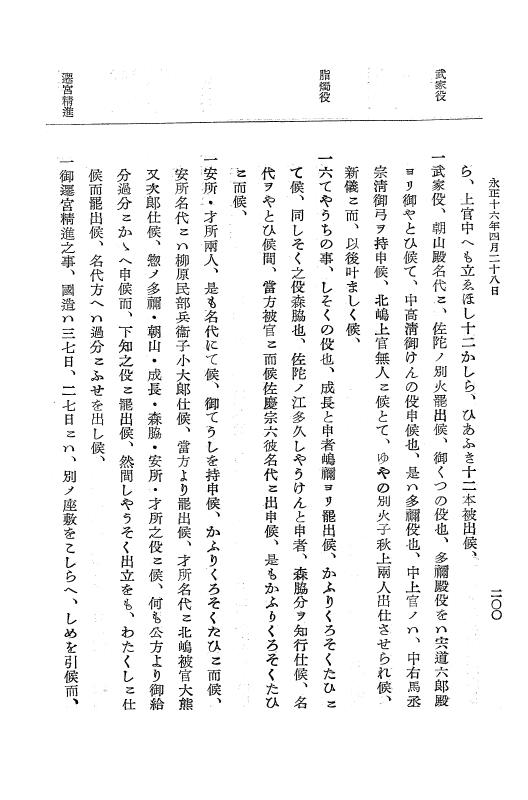 永正十六年四月二十八日
二〇〇
武家役
脂燭役
遷宮精進
ら、上官中へも立ゑほし十二かしら、ひあふき十二本被出候、
一武家役、朝山殿名代ニ、佐陀ノ別火罷出候、御くつの役也、多禰殿役をハ宍道六郎殿
ヨリ御やとひ候て、中髙清御けんの役申候也、是ハ多禰役也、中上官ノハ、中右馬丞
宗清御弓ヲ持申候、北嶋上官無人ニ候とて、ゆやの別火子秋上兩人出仕させられ候、
新儀ニ而、以後叶ましく候、
一六てやうちの事、しそくの役也、成長と申者嶋禰ヨリ罷出候、かふりくろそくたひニ
て候、同しそく之役森脇也、佐陀ノ江多久しやうけんと申者、森脇分ヲ知行仕候、名
代ヲやとひ候間、當方被官ニ而候佐慶宗六彼名代ニ出申候、是もかふりくろそくたひ
ニ而候、
一安所・才所兩人、是も名代にて候、御てうしを持申候、かふりくろそくたひニ而候、
安所名代ニハ柳原民部兵衞子小大郎仕候、當方より罷出候、才所名代ニ北嶋被官大熊
又次郎仕候、惣ノ多禰・朝山・成長・森脇・安所・才所之役ニ候、何も公方より御給
分過分ニかゝへ申候而、下知之役ニ罷出候、然間しやうそく出立をも、わたくしニ仕
候而罷出候、名代方へハ過分ニふせを出し候、
一御遷宮精進之事、國造ハ三七日、二七日ニハ、別ノ座敷をこしらへ、しめを引候而、